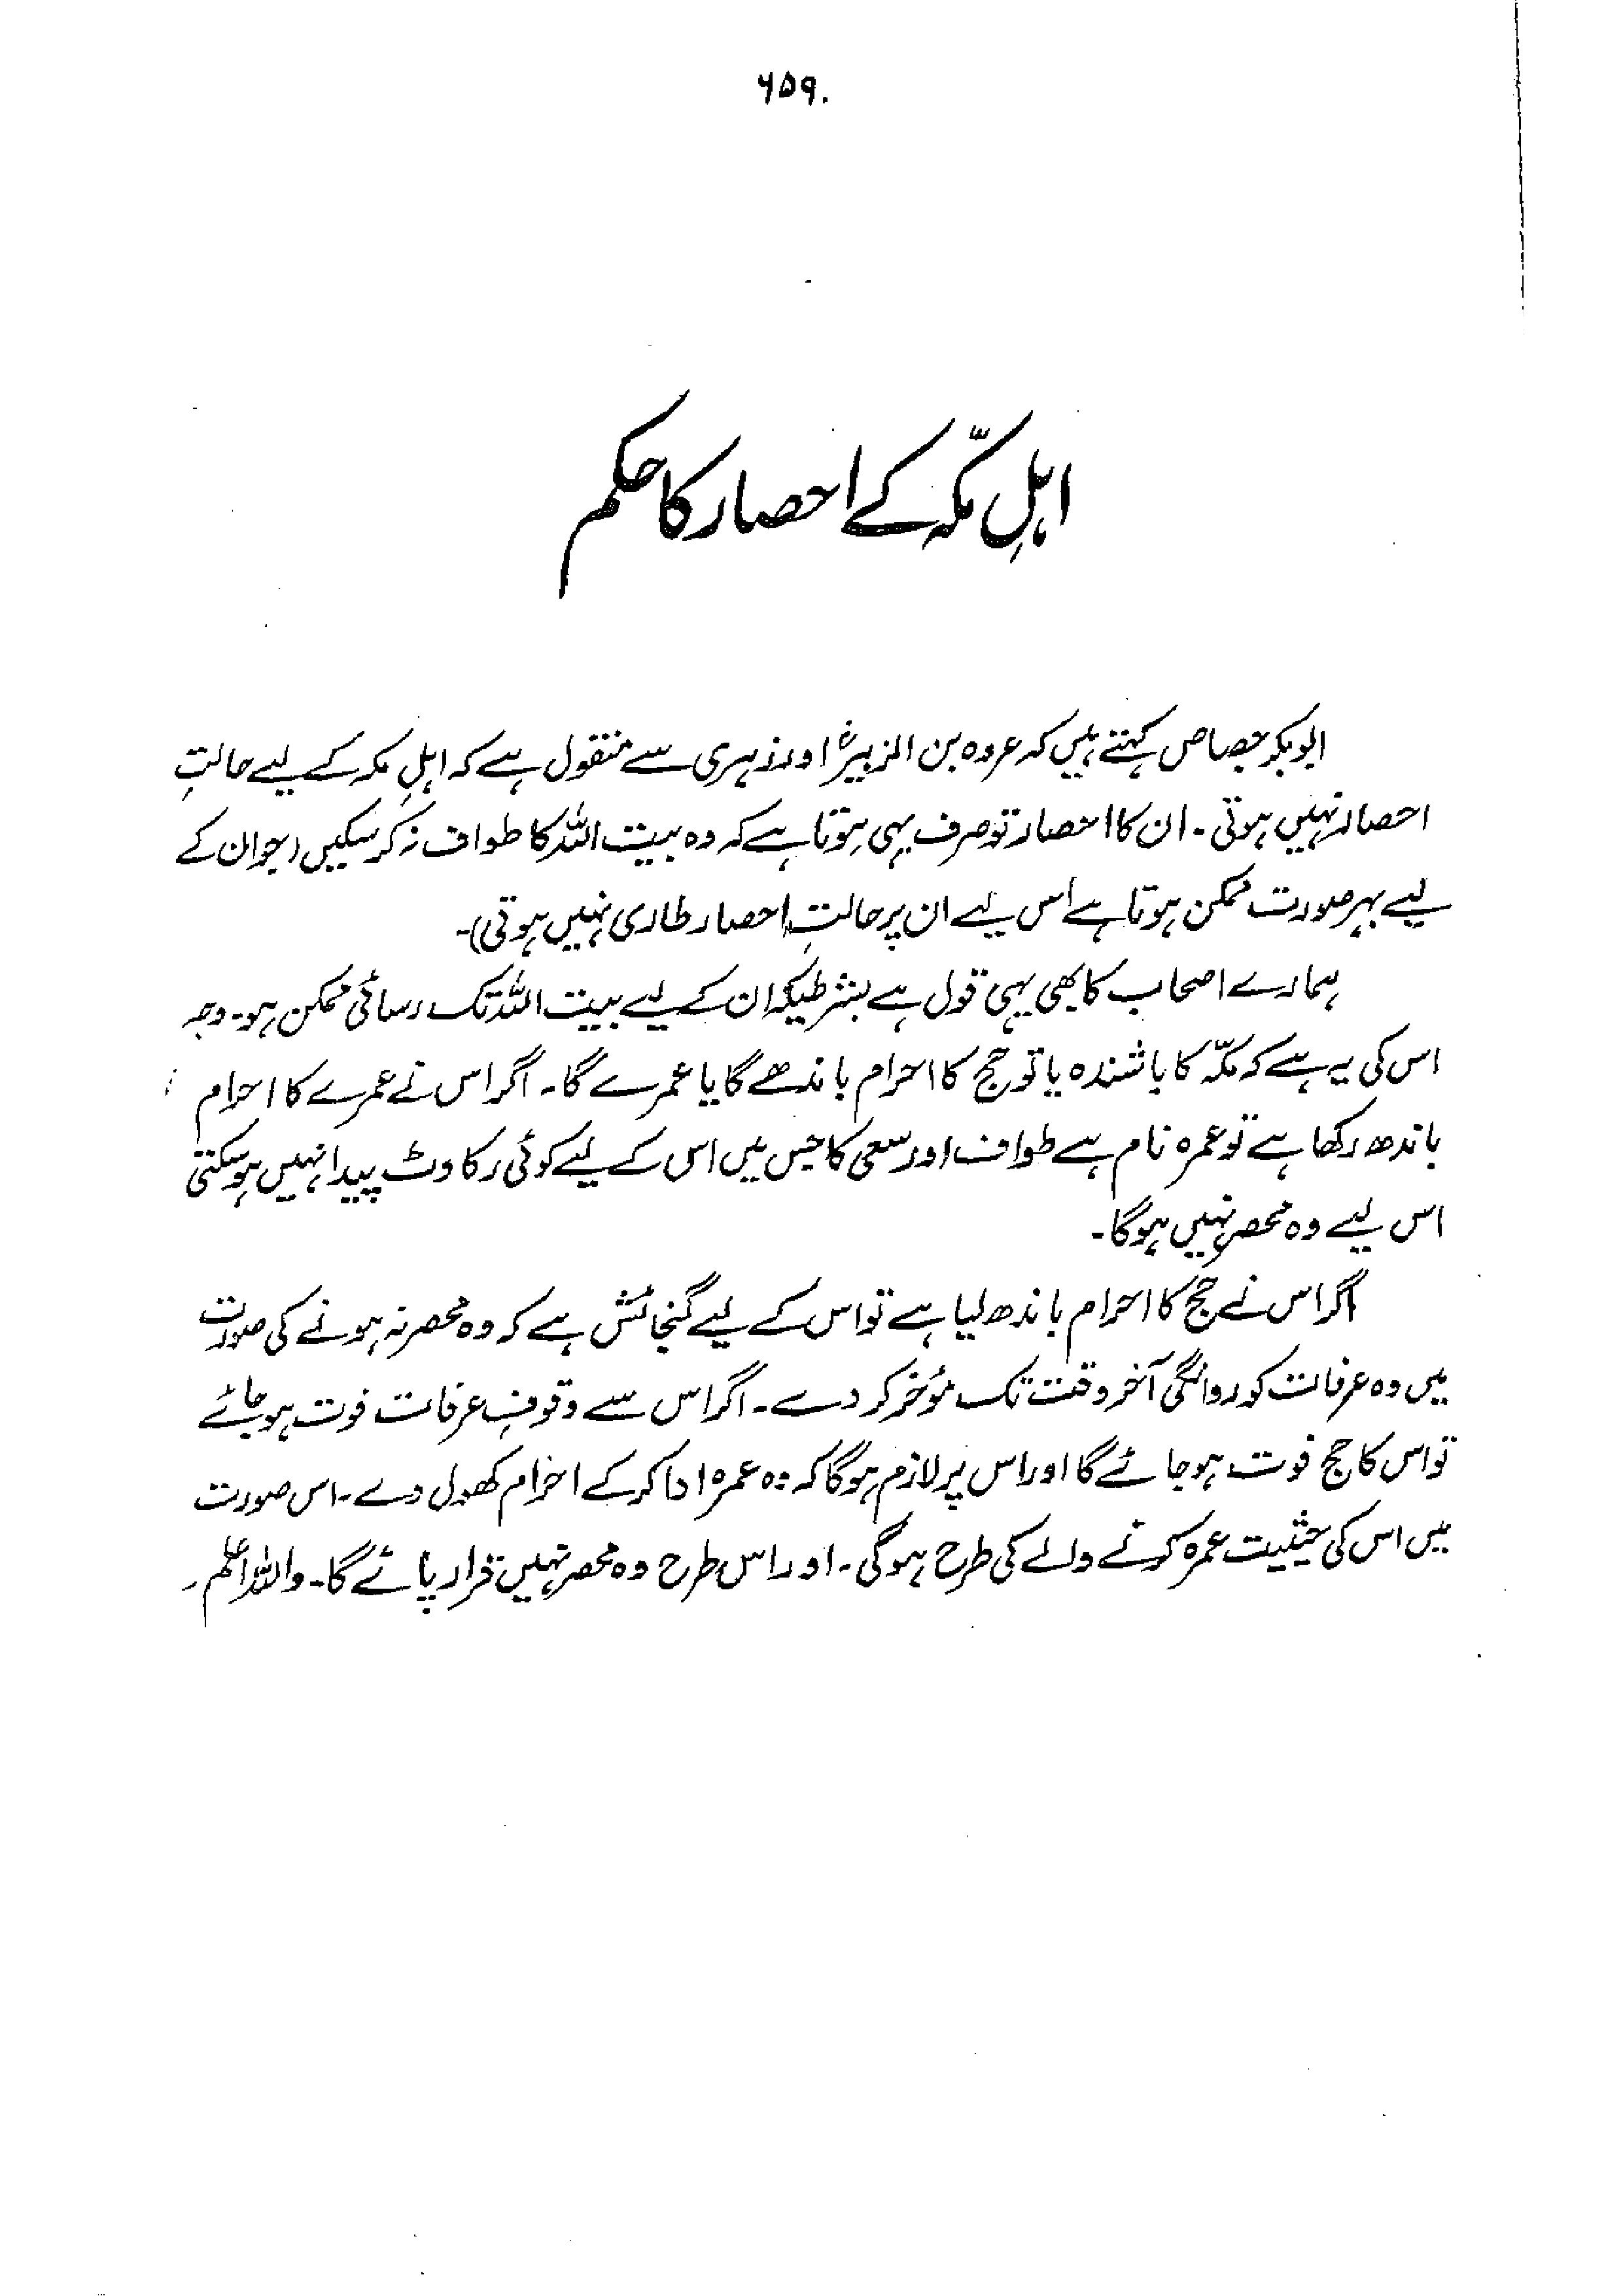 ۶۵۹
اہلِ مکّہ کے احصار کا حکم
ابوبکر جصاص کہتے ہیں کہ عروہ بن الزبیرؓ اور زہری سے منقول ہے کہ اہلِ مکہ کے لیے حالتِ
احصار نہیں ہوتی۔ ان کا احصار تو صرف یہی ہوتا ہے کہ وہ بیت اللہ کا طواف نہ کر سکیں (جو ان کے
لیے بہر صورت ممکن ہوتا ہے اس لیے ان پر حالتِ احصار طاری نہیں ہوتی)۔
ہمارے اصحاب کا بھی یہی قول ہے بشرطیکہ ان کے لیے بیت اللہ تک رسائی ممکن ہو۔ وجہ
اس کی یہ ہے کہ مکّہ کا باشندہ یا تو حج کا احرام باندھے گا یا عمرے گا۔ اگر اس نے عمرے کا احرام
باندھ رکھا ہے تو عمرہ نام ہے طواف اور سعی کا جس میں اس کے لیے کوئی رکاوٹ پیدا نہیں ہو سکتی
اس لیے وہ محصر نہیں ہوگا۔
اگر اس نے حج کا احرام باندھ لیا ہے تو اس کے لیے گنجائش ہے کہ وہ محصر نہ ہونے کی صورت
میں وہ عرفات کو روانگی آخر وقت تک مؤخر کر دے۔ اگر اس سے وقوفِ عرفات فوت ہو جائے
تو اس کا حج فوت ہو جائے گا اور اس پر لازم ہوگا کہ وہ عمرہ ادا کر کے احرام کھول دے۔ اس صورت
میں اس کی حیثیت عمرہ کرنے والے کی طرح ہوگی۔ اور اس طرح وہ محصر نہیں قرار پائے گا۔ واللہ اعلم۔